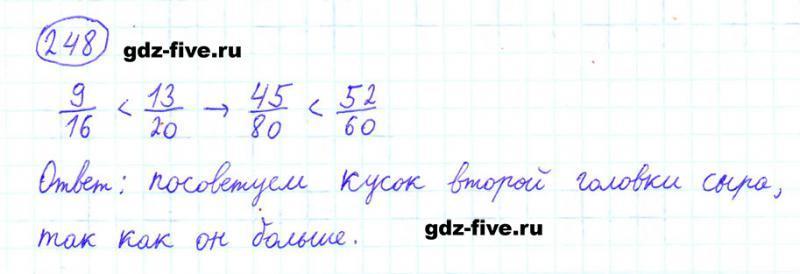 248
gdz-five.ru
9/16 < 13/20 → 45/80 < 52/60
Ответ: посоветуем кусок второй головки сыра,
так как он больше.
gdz-five.ru